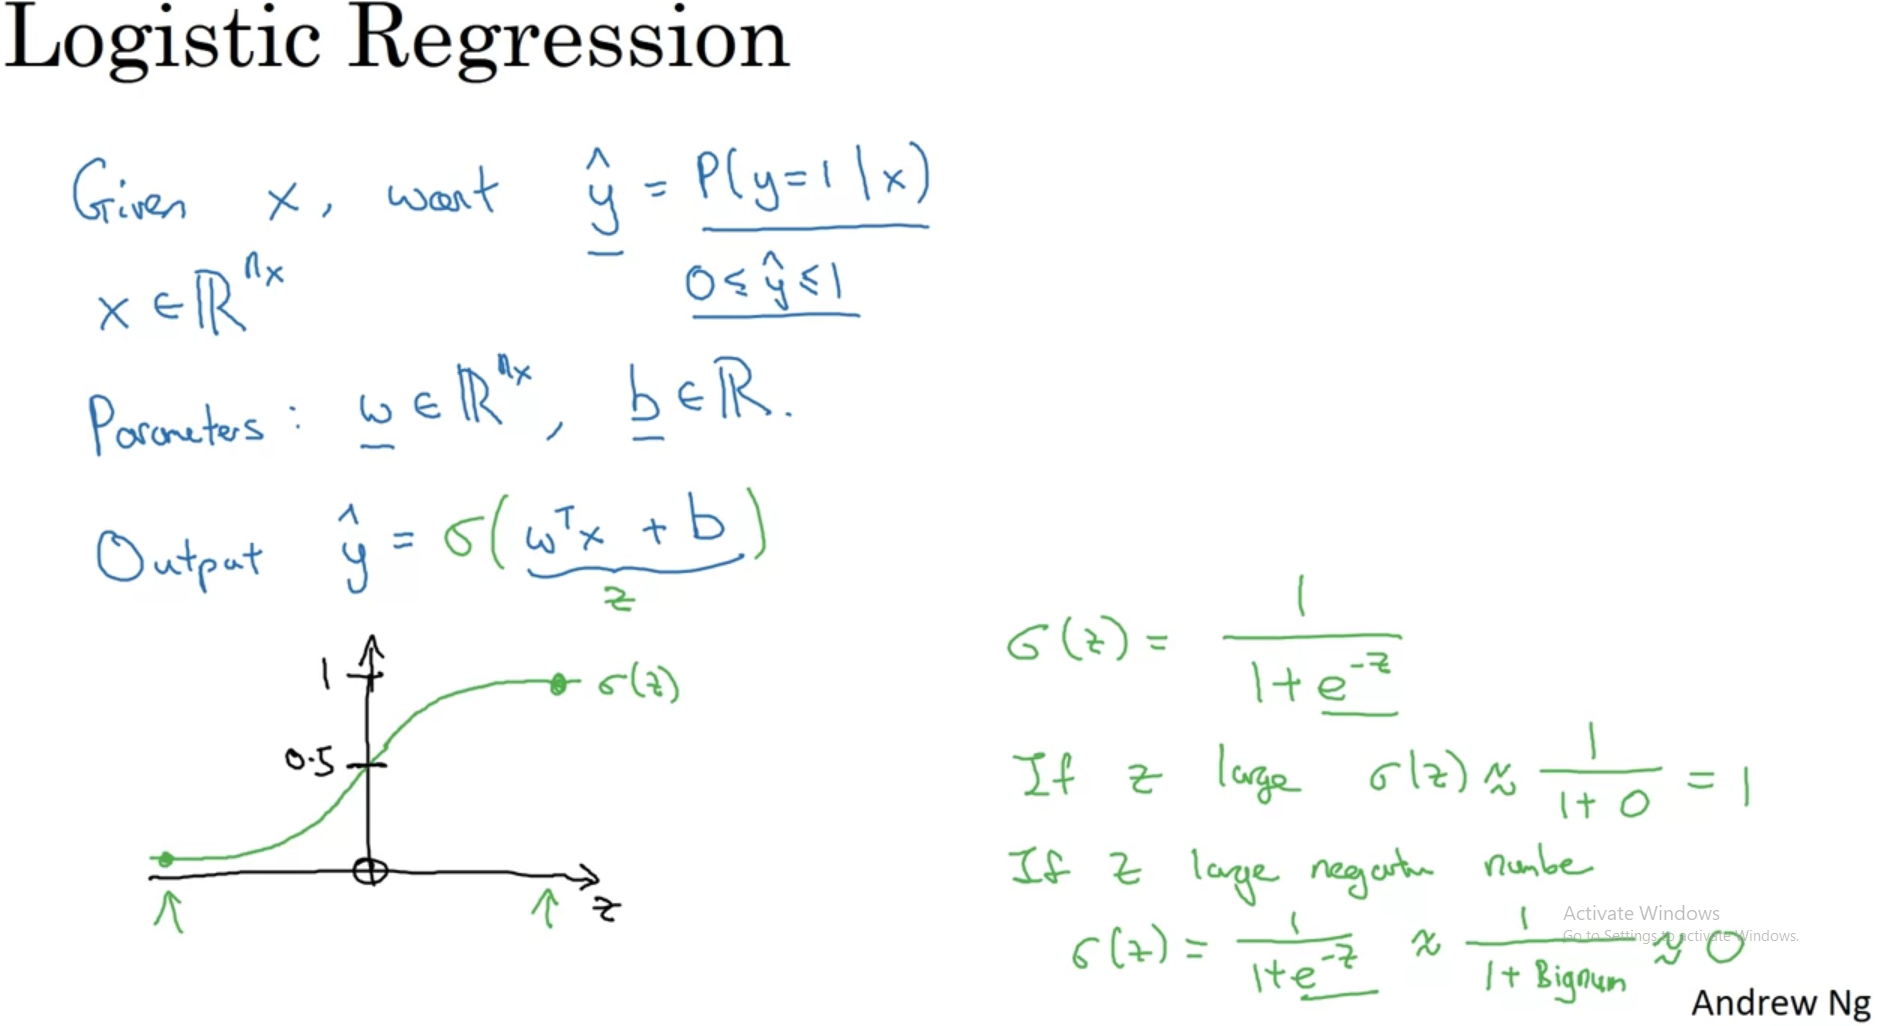 Logistic Regression
Given x, want ŷ = P(y=1|x)
x ∈ ℝ^nx 0 ≤ ŷ ≤ 1
Parameters: w ∈ ℝ^nx, b ∈ ℝ.
Output ŷ = σ(wᵀx + b)
z
1
σ(z)
0.5
z
σ(z) = 1 / (1 + e^-z)
If z large σ(z) ≈ 1 / (1 + 0) = 1
If z large negative number
σ(z) = 1 / (1 + e^-z) ≈ 1 / (1 + Bignum) ≈ 0
Activate Windows
Go to Settings to activate Windows.
Andrew Ng